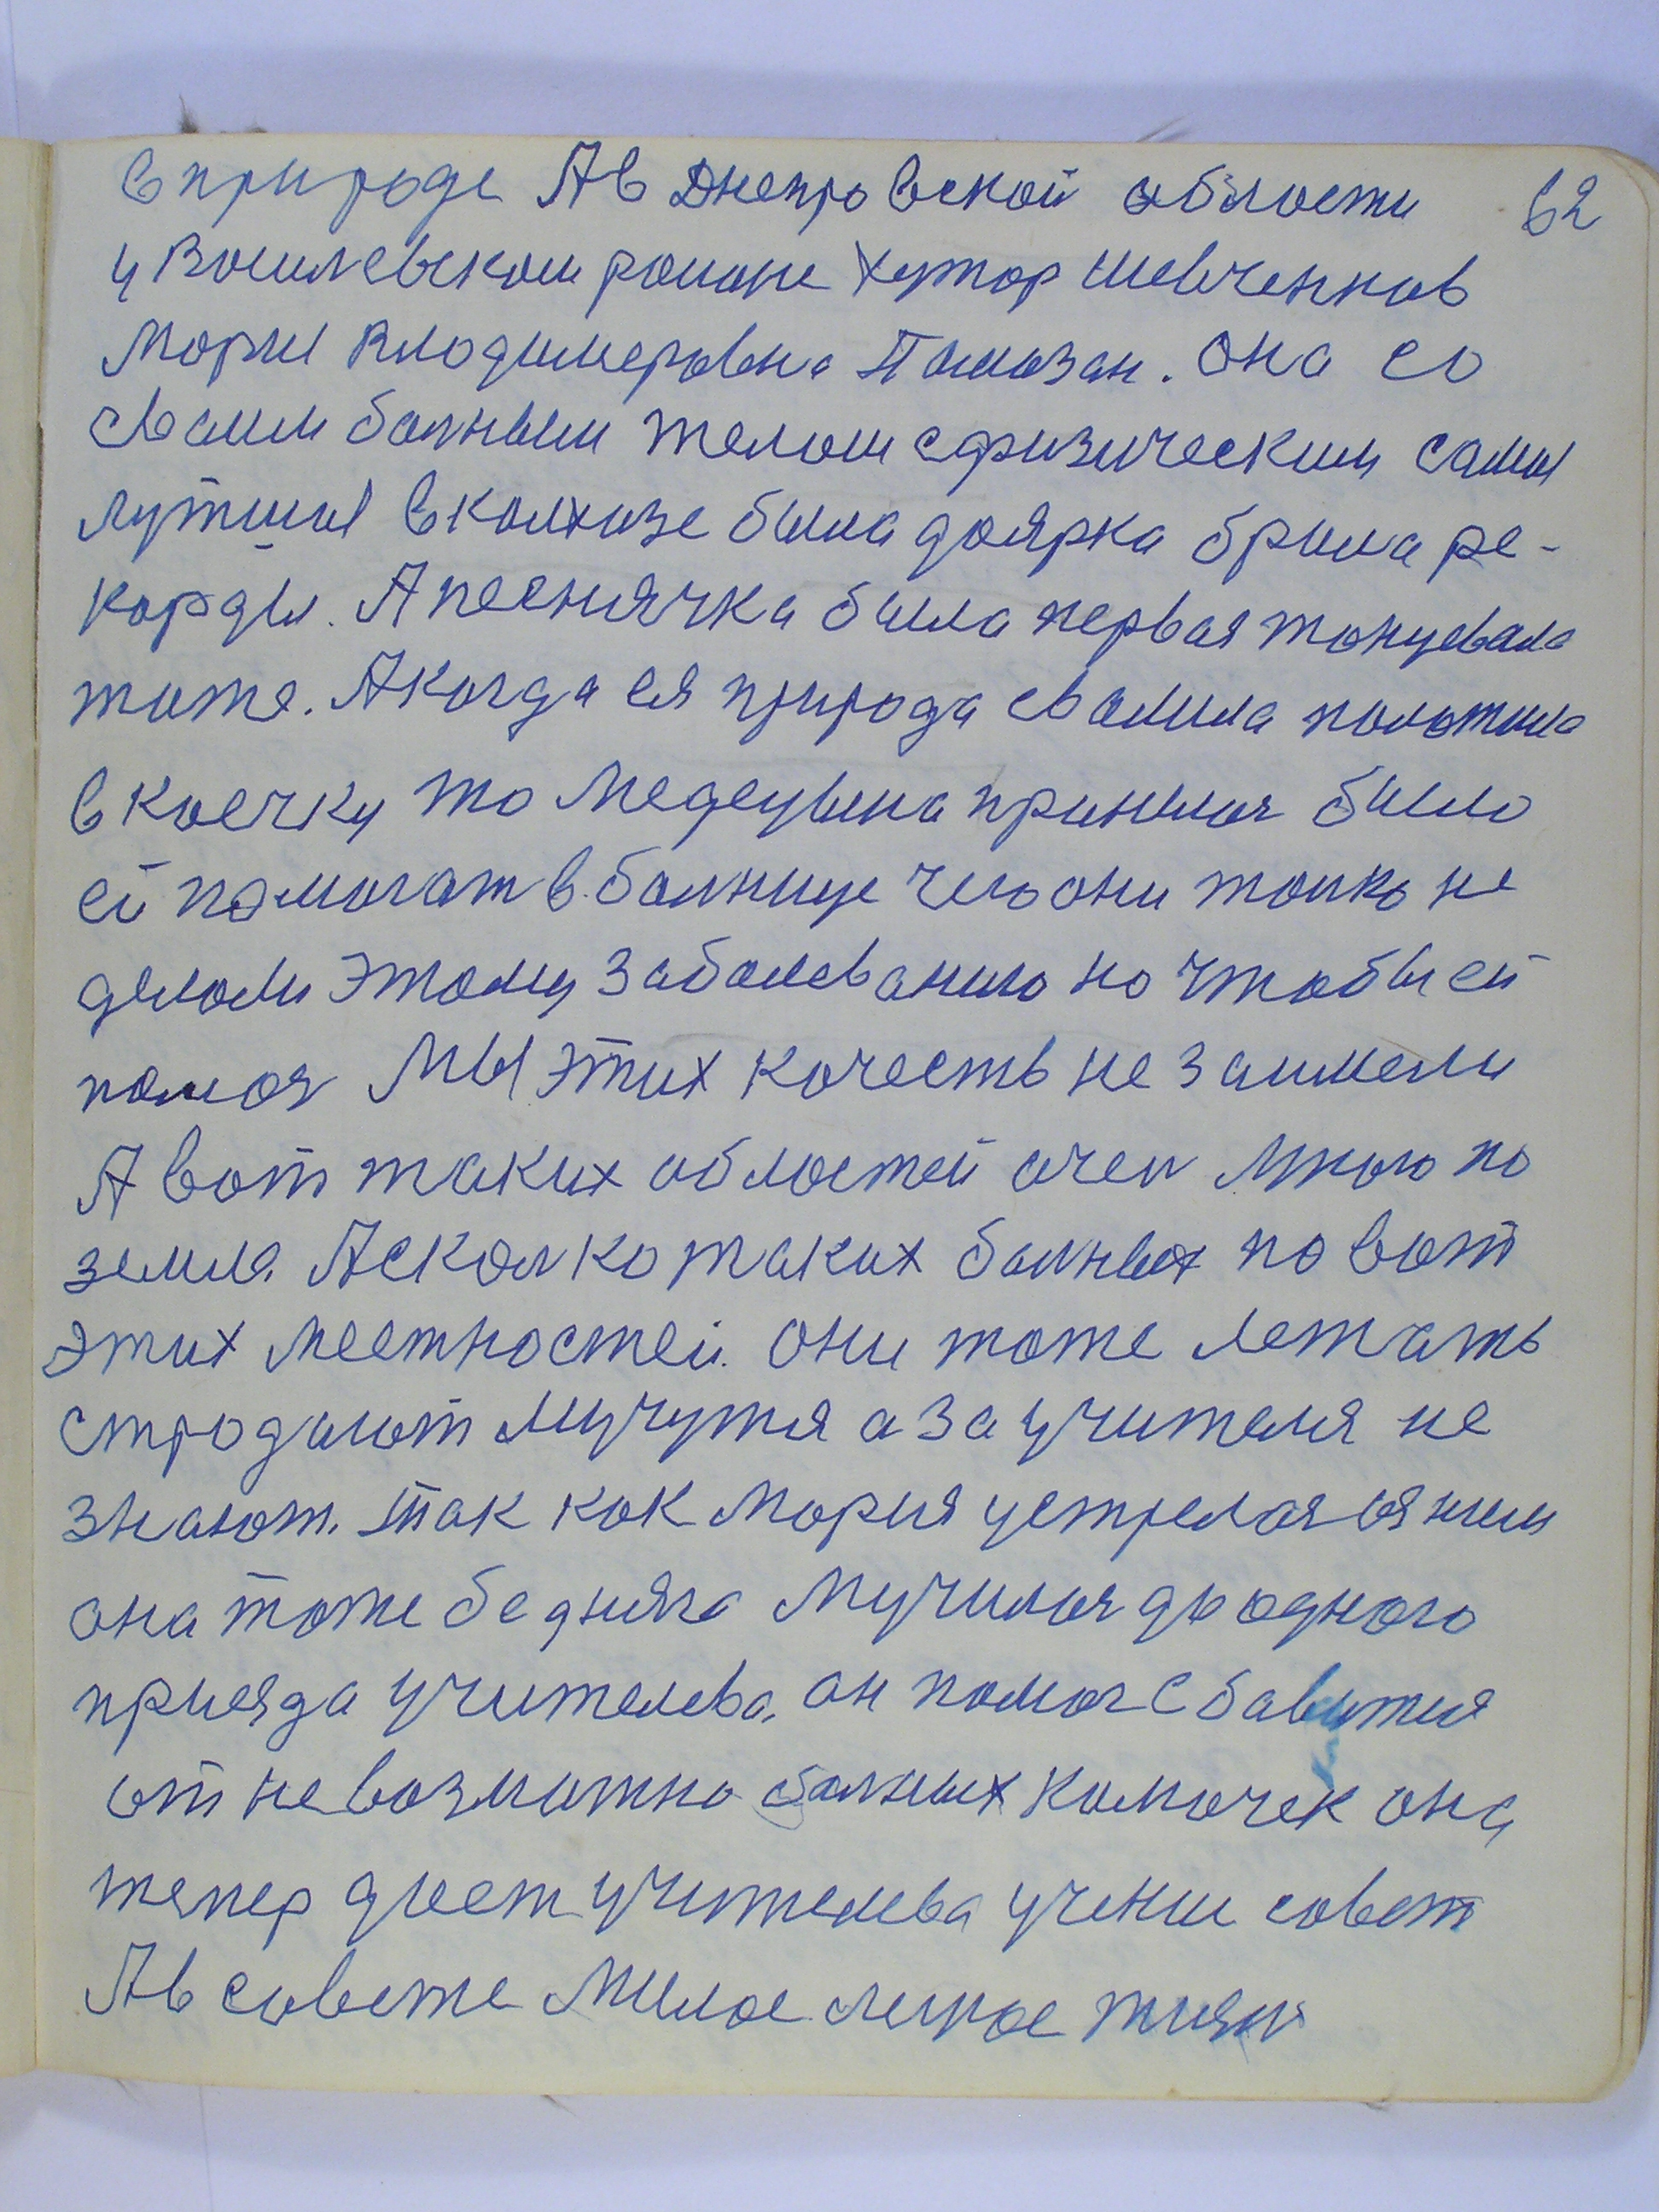 в природе А в Днепровской области 62
у Восилевском роионе хутор шевченков
Мория Влодимеровна Помозан. она со
своим болным телом сфизическим самая
лутшая в колхозе была доярка брала ре-
корды. А песнячка была первая тонцевала
тоже. А когда ея природа свалила положила
в коечку то Медецына приняля было
ей помогат в болнице чего они толко не
делоли этому заболеванию но чтобы ей
помоч МЫ этих кочеств не заимели
А вот таких облостей очен много по
земле. А сколко таких болных по вот
этих месностей. они тоже лежать
стродают мучутя а за учителя не
знают. так как Мория устрелася сяним
она тоже бедняга Мучилася до одного
прияза учителева. он помог сбавитя
от невозможно болных комочек она
тепер дает учителева учение совет
А в совете милое легкое жизн